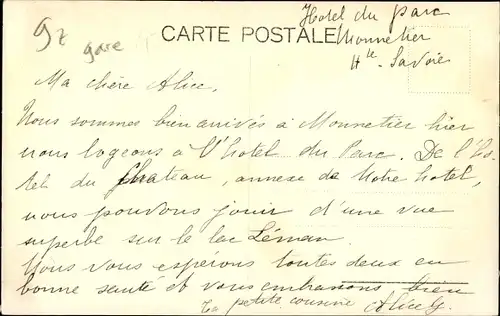 Hotel du Parc
CARTE POSTALE
gare
Monnetier
Hte-Savoie
Ma chère Alice,
Nous sommes bien arrivés à Monnetier hier
nous logeons à l'hotel du Parc. De l'Ho-
tel du Chateau, annexe de notre hotel,
nous pouvons jouir d'une vue
superbe sur le lac Léman.
Nous vous espérons toutes deux en
bonne santé et vous embrassons bien
Ta petite cousine Alice G.